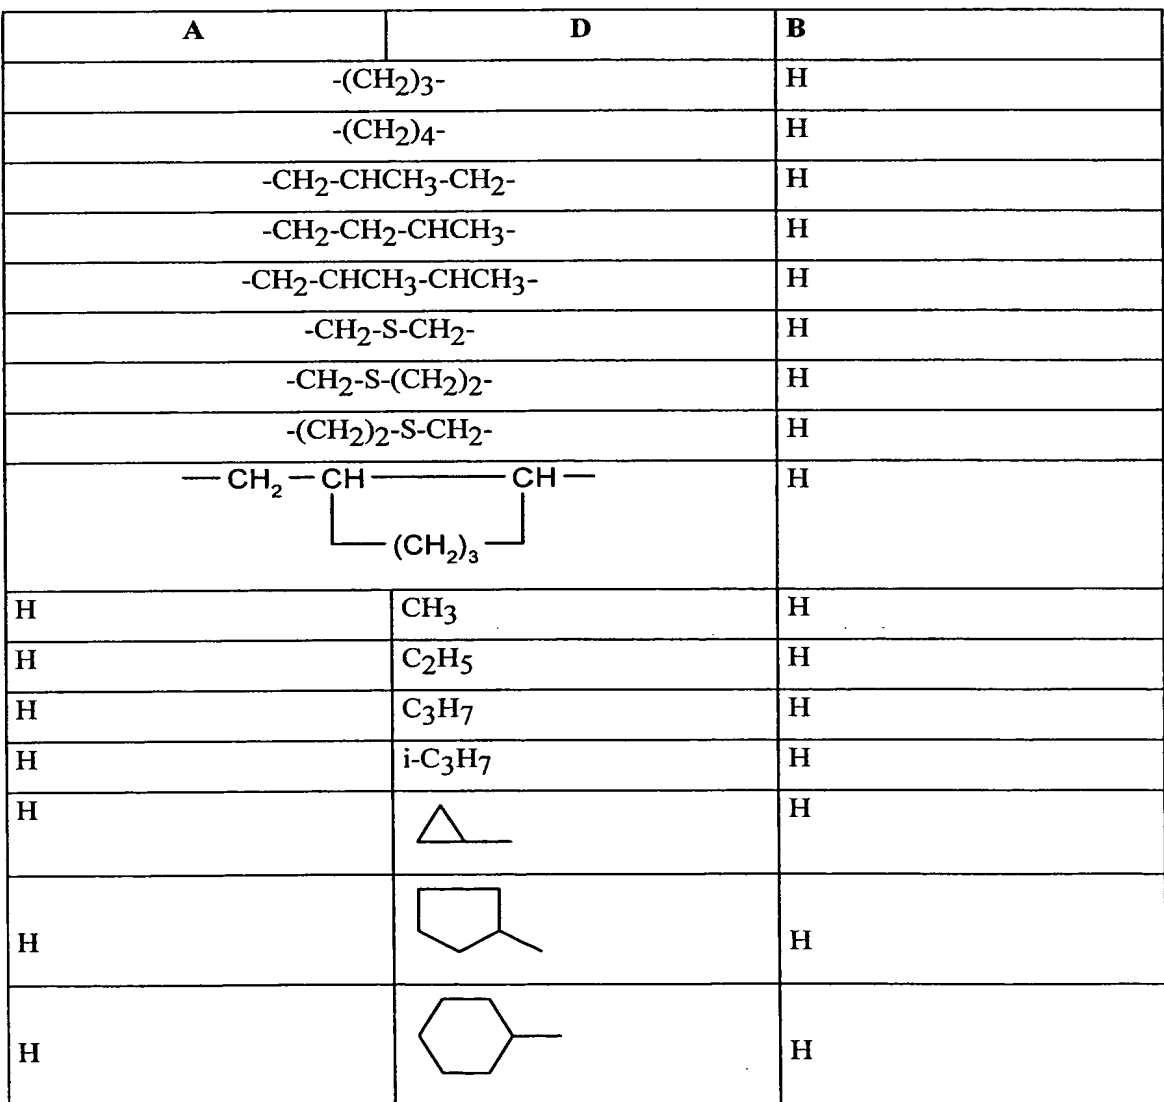 A D B
-(CH2)3- H
-(CH2)4- H
-CH2-CHCH3-CH2- H
-CH2-CH2-CHCH3- H
-CH2-CHCH3-CHCH3- H
-CH2-S-CH2- H
-CH2-S-(CH2)2- H
-(CH2)2-S-CH2- H
—CH2—CH——CH— H
(CH2)3
H CH3 H
H C2H5 H
H C3H7 H
H i-C3H7 H
H H
H H
H H